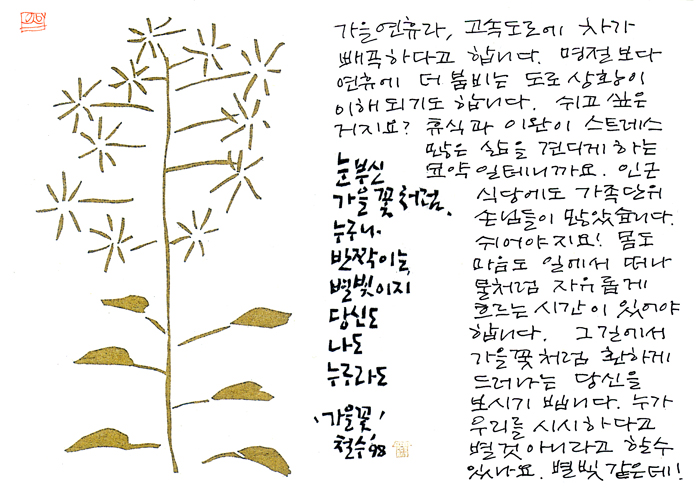 가을연휴라, 고속도로에 차가
빼곡하다고 합니다. 명절보다
연휴에 더 붐비는 도로상황이
이해되기도 합니다. 쉬고 싶은
거지요? 휴식과 이완이 스트레스
많은 삶을 견디게 하는
묘약일테니까요. 인근
식당에도 가족단위
손님들이 많았습니다.
쉬어야지요! 몸도
마음도 일에서 떠나
물처럼 자유롭게
흐르는 시간이 있어야
합니다. 그길에서
가을꽃처럼 환하게
드러나는 당신을
보시기 빕니다. 누가
우리를 시시하다고
별것아니라고 할수
있나요. 별빛같은데!
눈부신
가을꽃처럼.
누구나.
반짝이는
별빛이지
당신도
나도
누구라도
'가을꽃'
철수 '98